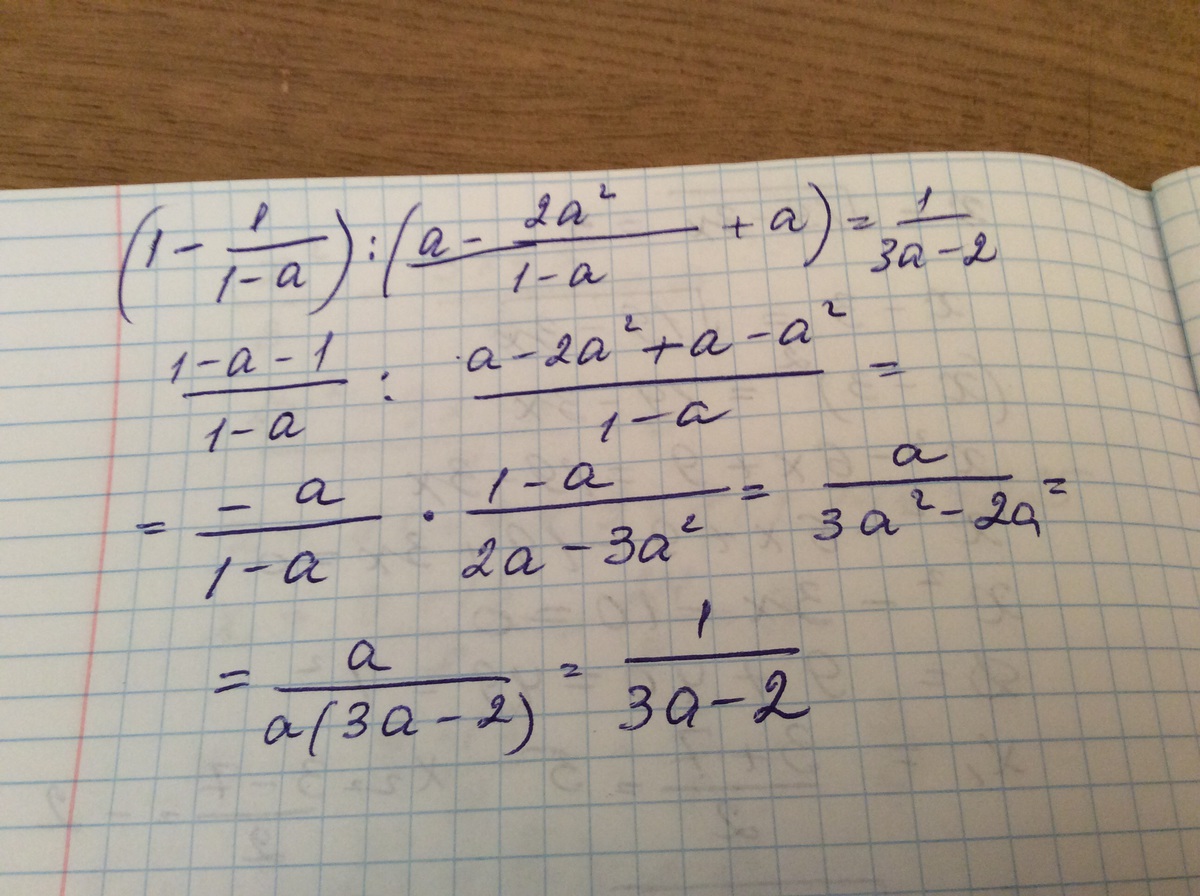 (1 - 1/(1-a)) : ((a - 2a²)/(1-a) + a) = 1/(3a-2)
(1-a-1)/(1-a) : (a-2a²+a-a²)/(1-a) =
= (-a)/(1-a) · (1-a)/(2a-3a²) = a/(3a²-2a) =
= a/(a(3a-2)) = 1/(3a-2)